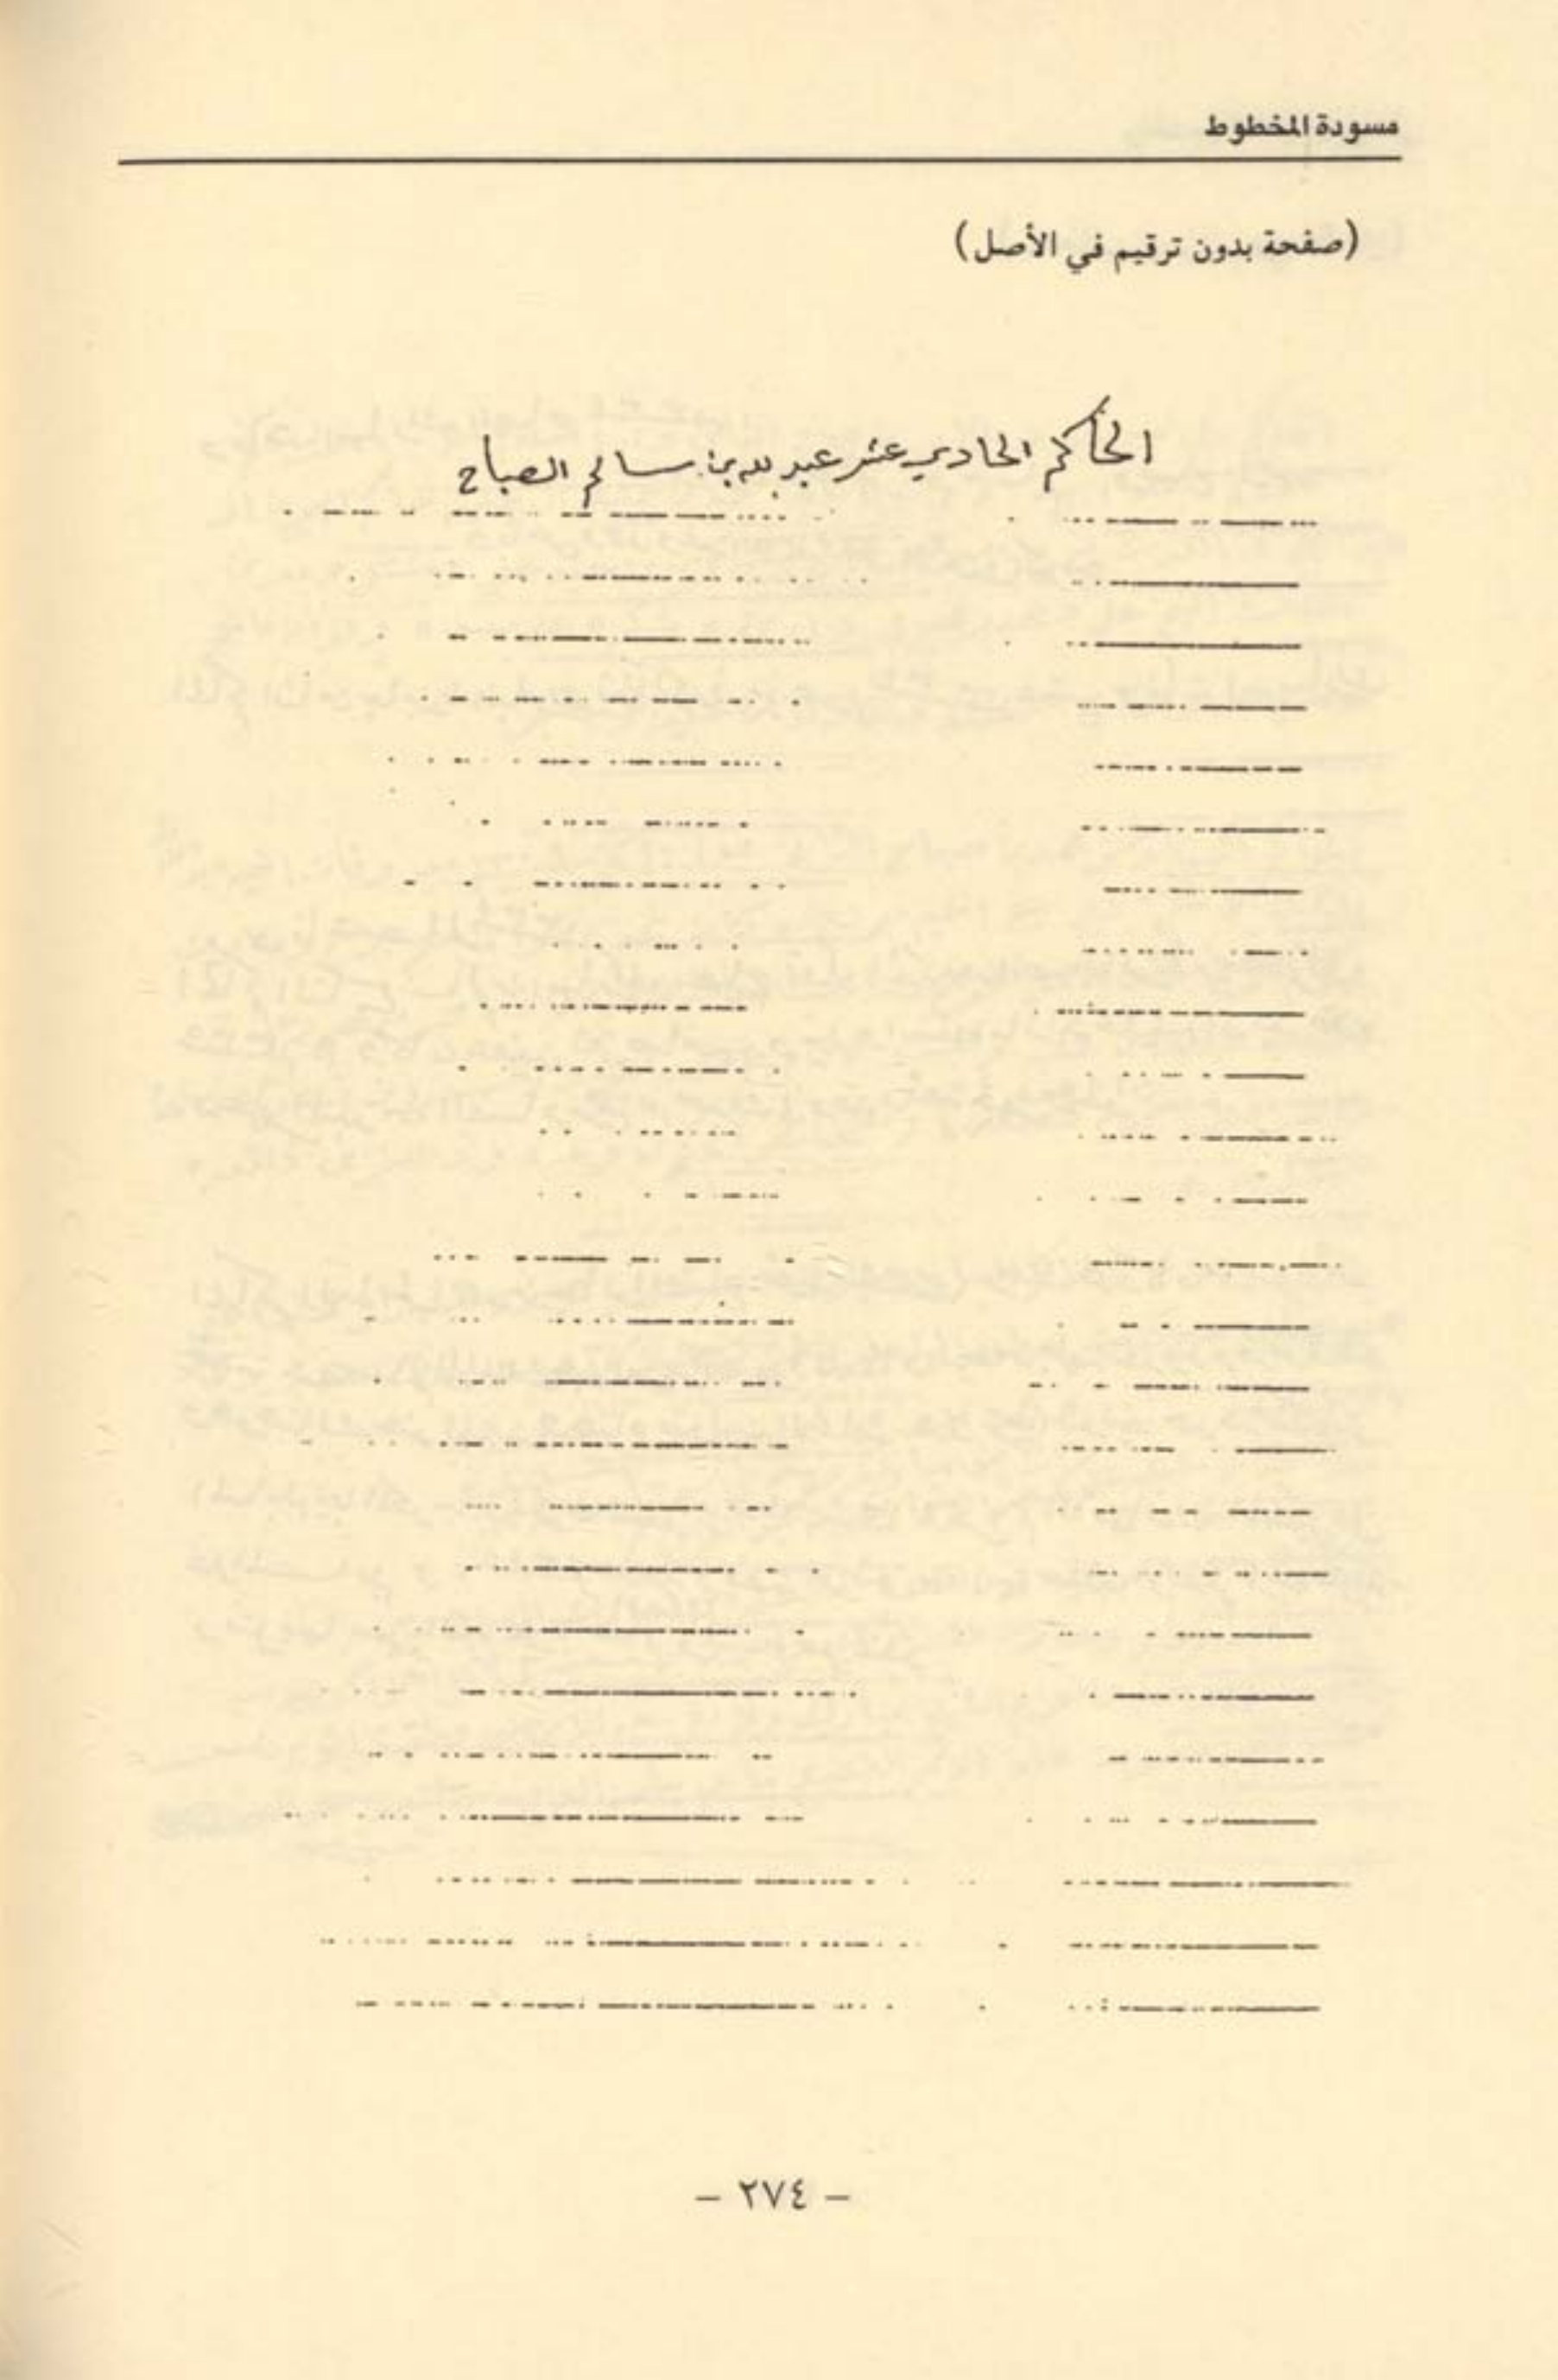 مسودة المخطوط
(صفحة بدون ترقيم في الأصل)
الحاكم الحادي عشر عبد الله بن سالم الصباح
- ٢٧٤ -